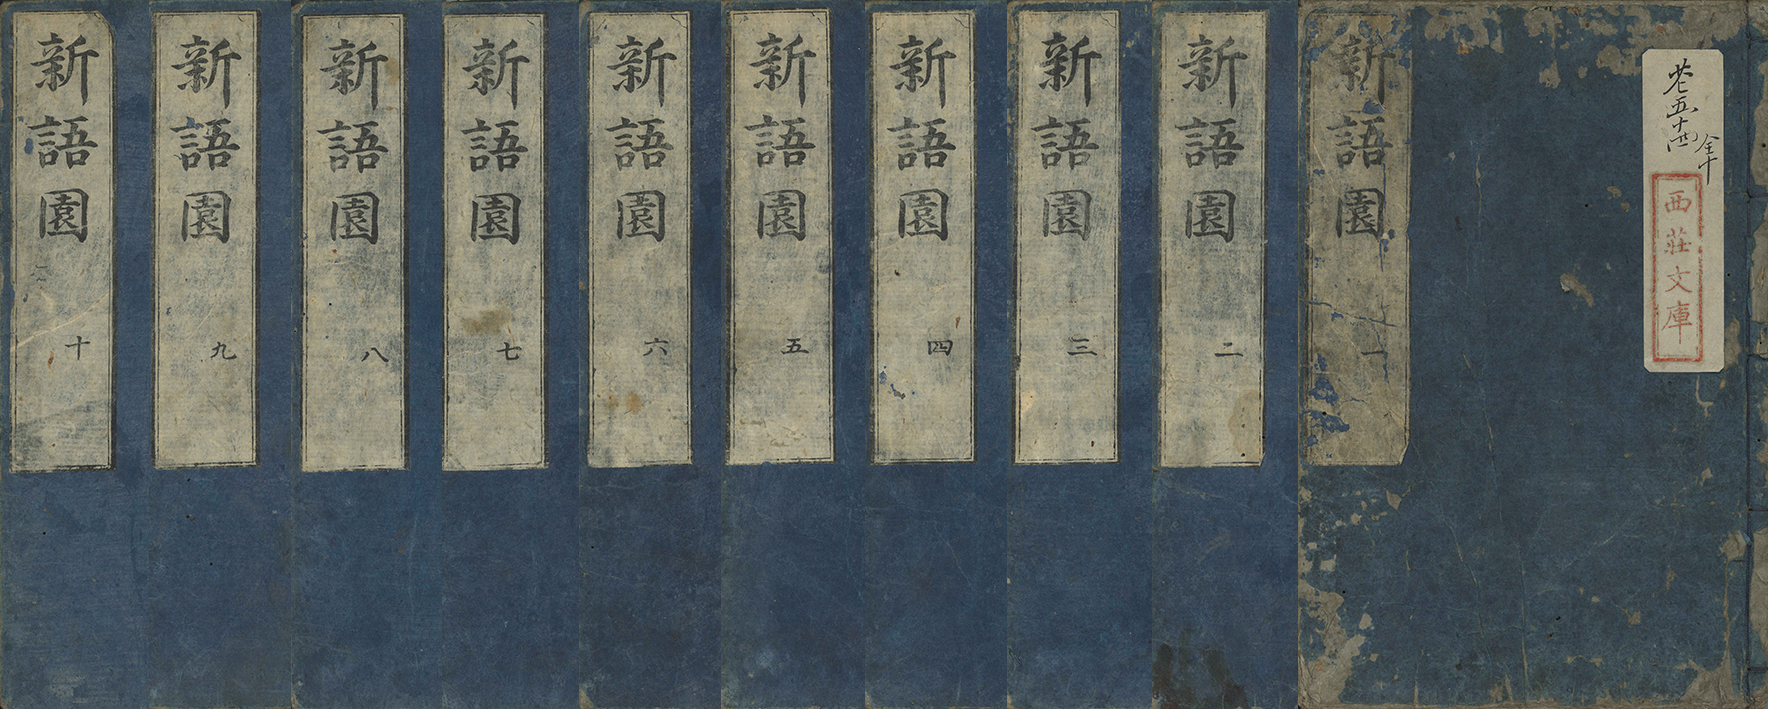 巻五十四
全十
西荘文庫
新語園 一
新語園 二
新語園 三
新語園 四
新語園 五
新語園 六
新語園 七
新語園 八
新語園 九
新語園 十